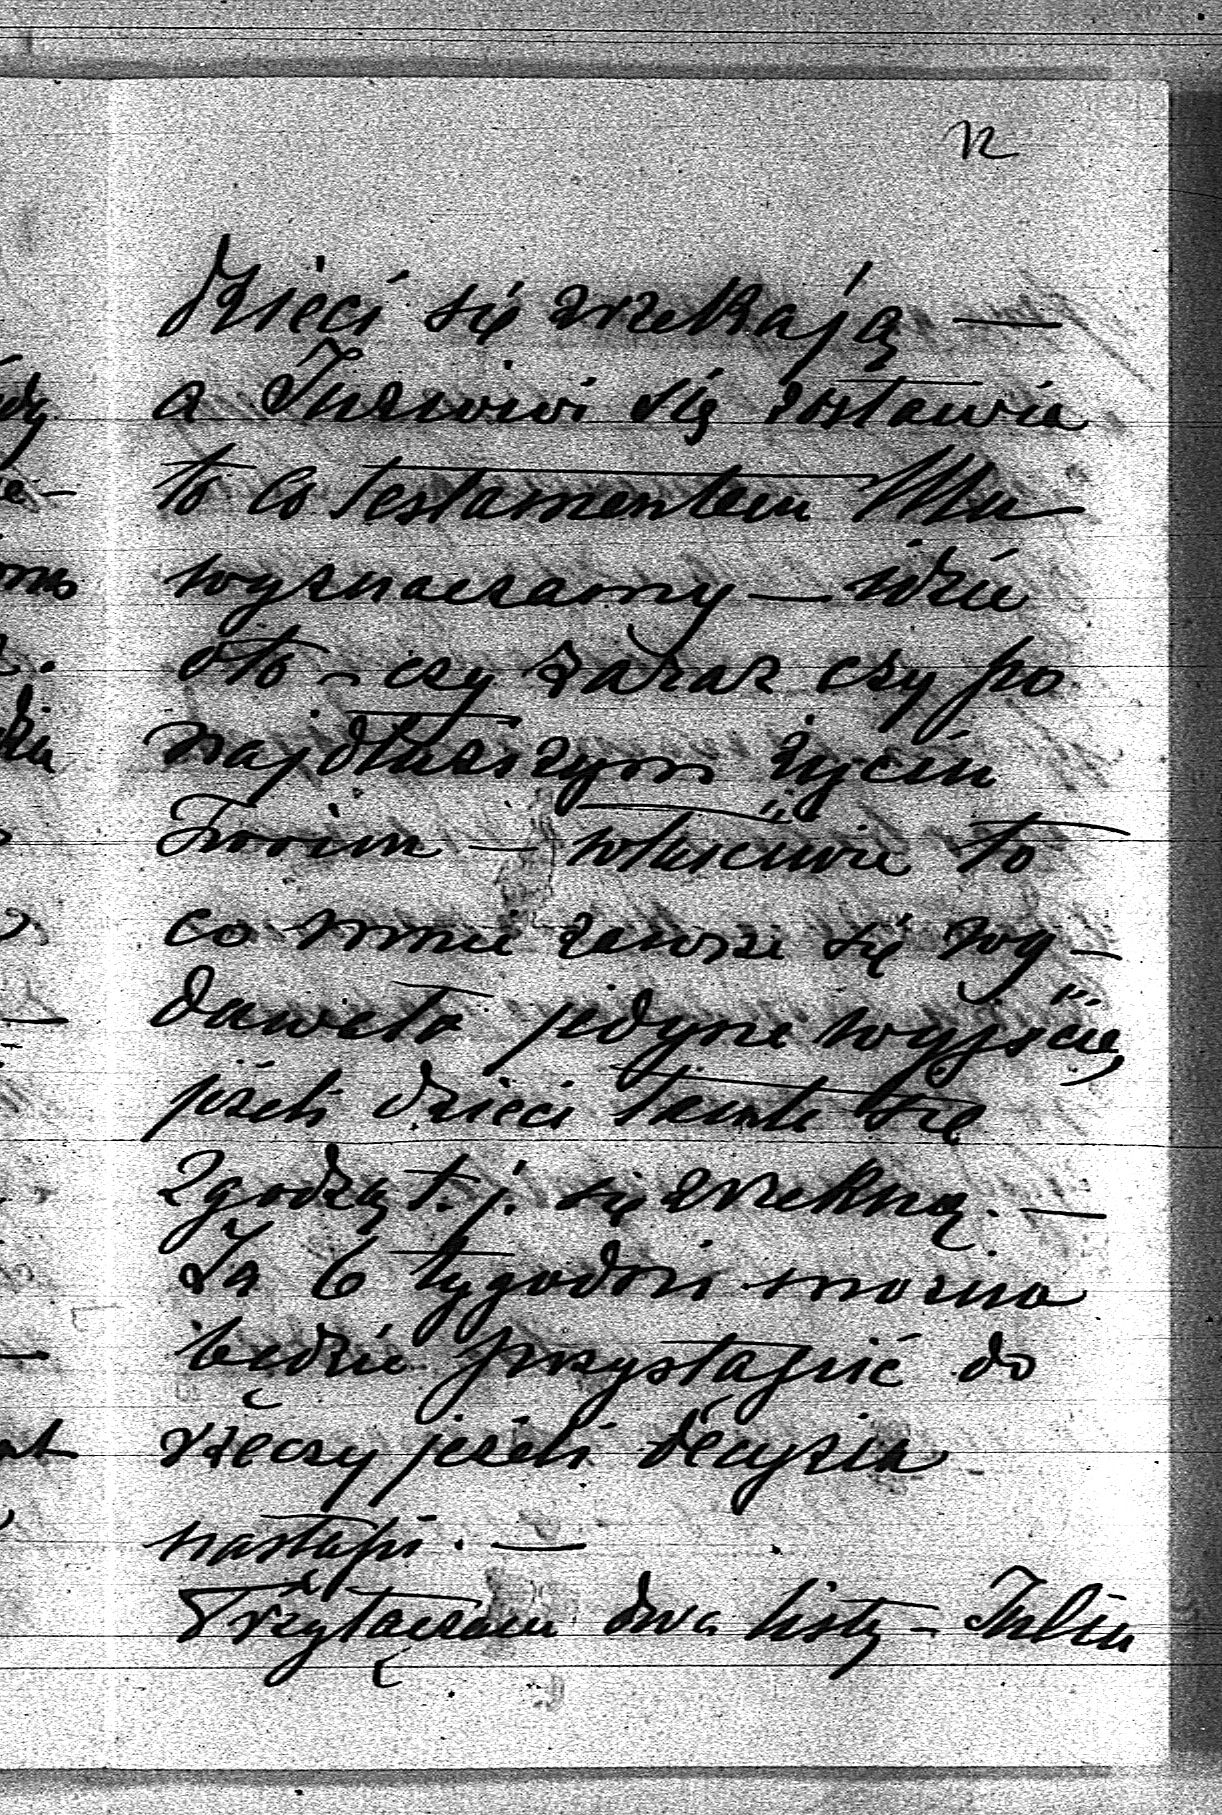 12
dzieci się zrzekają —
a Juziowi się zostawia
to co testamentem Mu
wyznaczamy — idzie
oto – czy zaraz czy po
najdłuższym życiu
Twoim — właściwie to
co mnie zawsze się wy-
dawało jedyne wyjście,
jeżeli dzieci tamte się
zgodzą t. j. się zrzekną. —
Za 6 tygodni można
będzie przystąpić do
rzeczy jeżeli decyzia
nastąpi. —
Przyłączam dwa listy – Julin